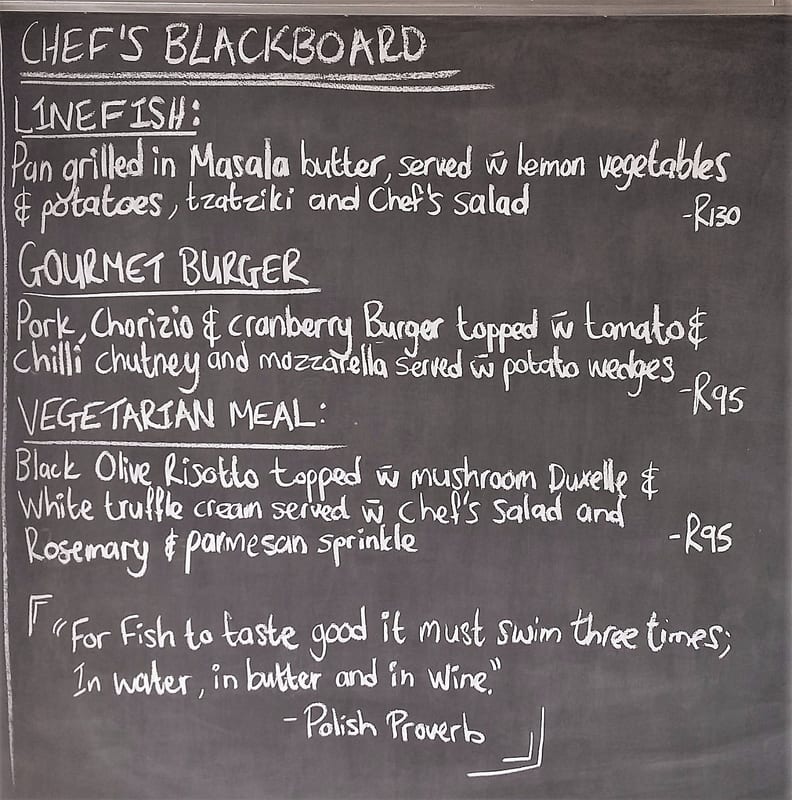 CHEF'S BLACKBOARD
LINEFISH:
Pan grilled in Masala butter, served w̄ lemon vegetables
& potatoes, tzatziki and Chef's Salad
-R130
GOURMET BURGER
Pork, Chorizio & cranberry Burger topped w̄ tomato &
chilli chutney and mozzarella served w̄ potato wedges
-R95
VEGETARIAN MEAL:
Black Olive Risotto topped w̄ mushroom Duxelle &
White truffle cream served w̄ Chef's Salad and
Rosemary & parmesan sprinkle
-R95
"For Fish to taste good it must swim three times;
In water, in butter and in wine."
- Polish Proverb